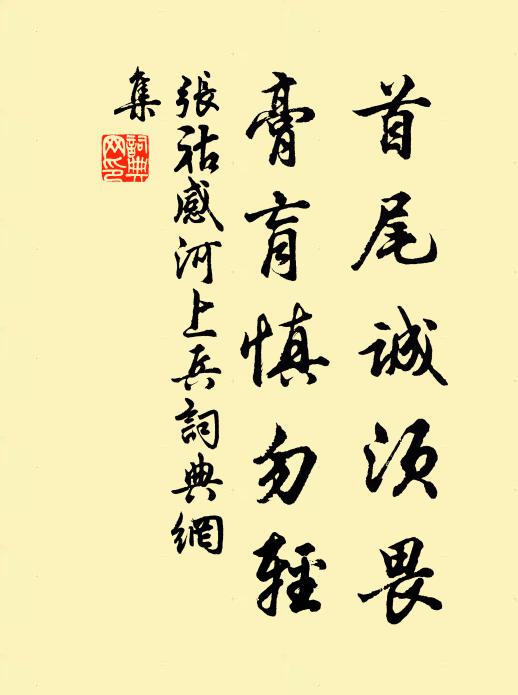 首尾誠須畏
膏肓慎勿輕
張祜感河上兵詞典網
集
詞典
网印